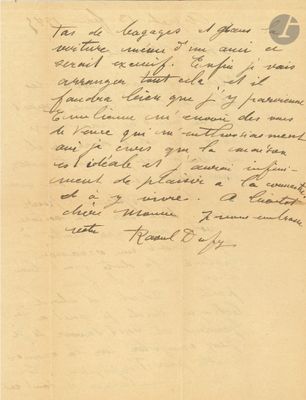 tas de bagages et dans la
voiture même d'un ami ce
serait excessif. Enfin je vais
arranger tout cela et il
faudra bien que j'y parvienne
Emilienne m'envoie des vues
de Vence qui m'enthousiasment
oui je crois que la maison
est idéale et j'aurai infini-
ment de plaisir à la connaître
et à y vivre. A bientôt
chère Mamie. Je vous embrasse
votre Raoul Dufy